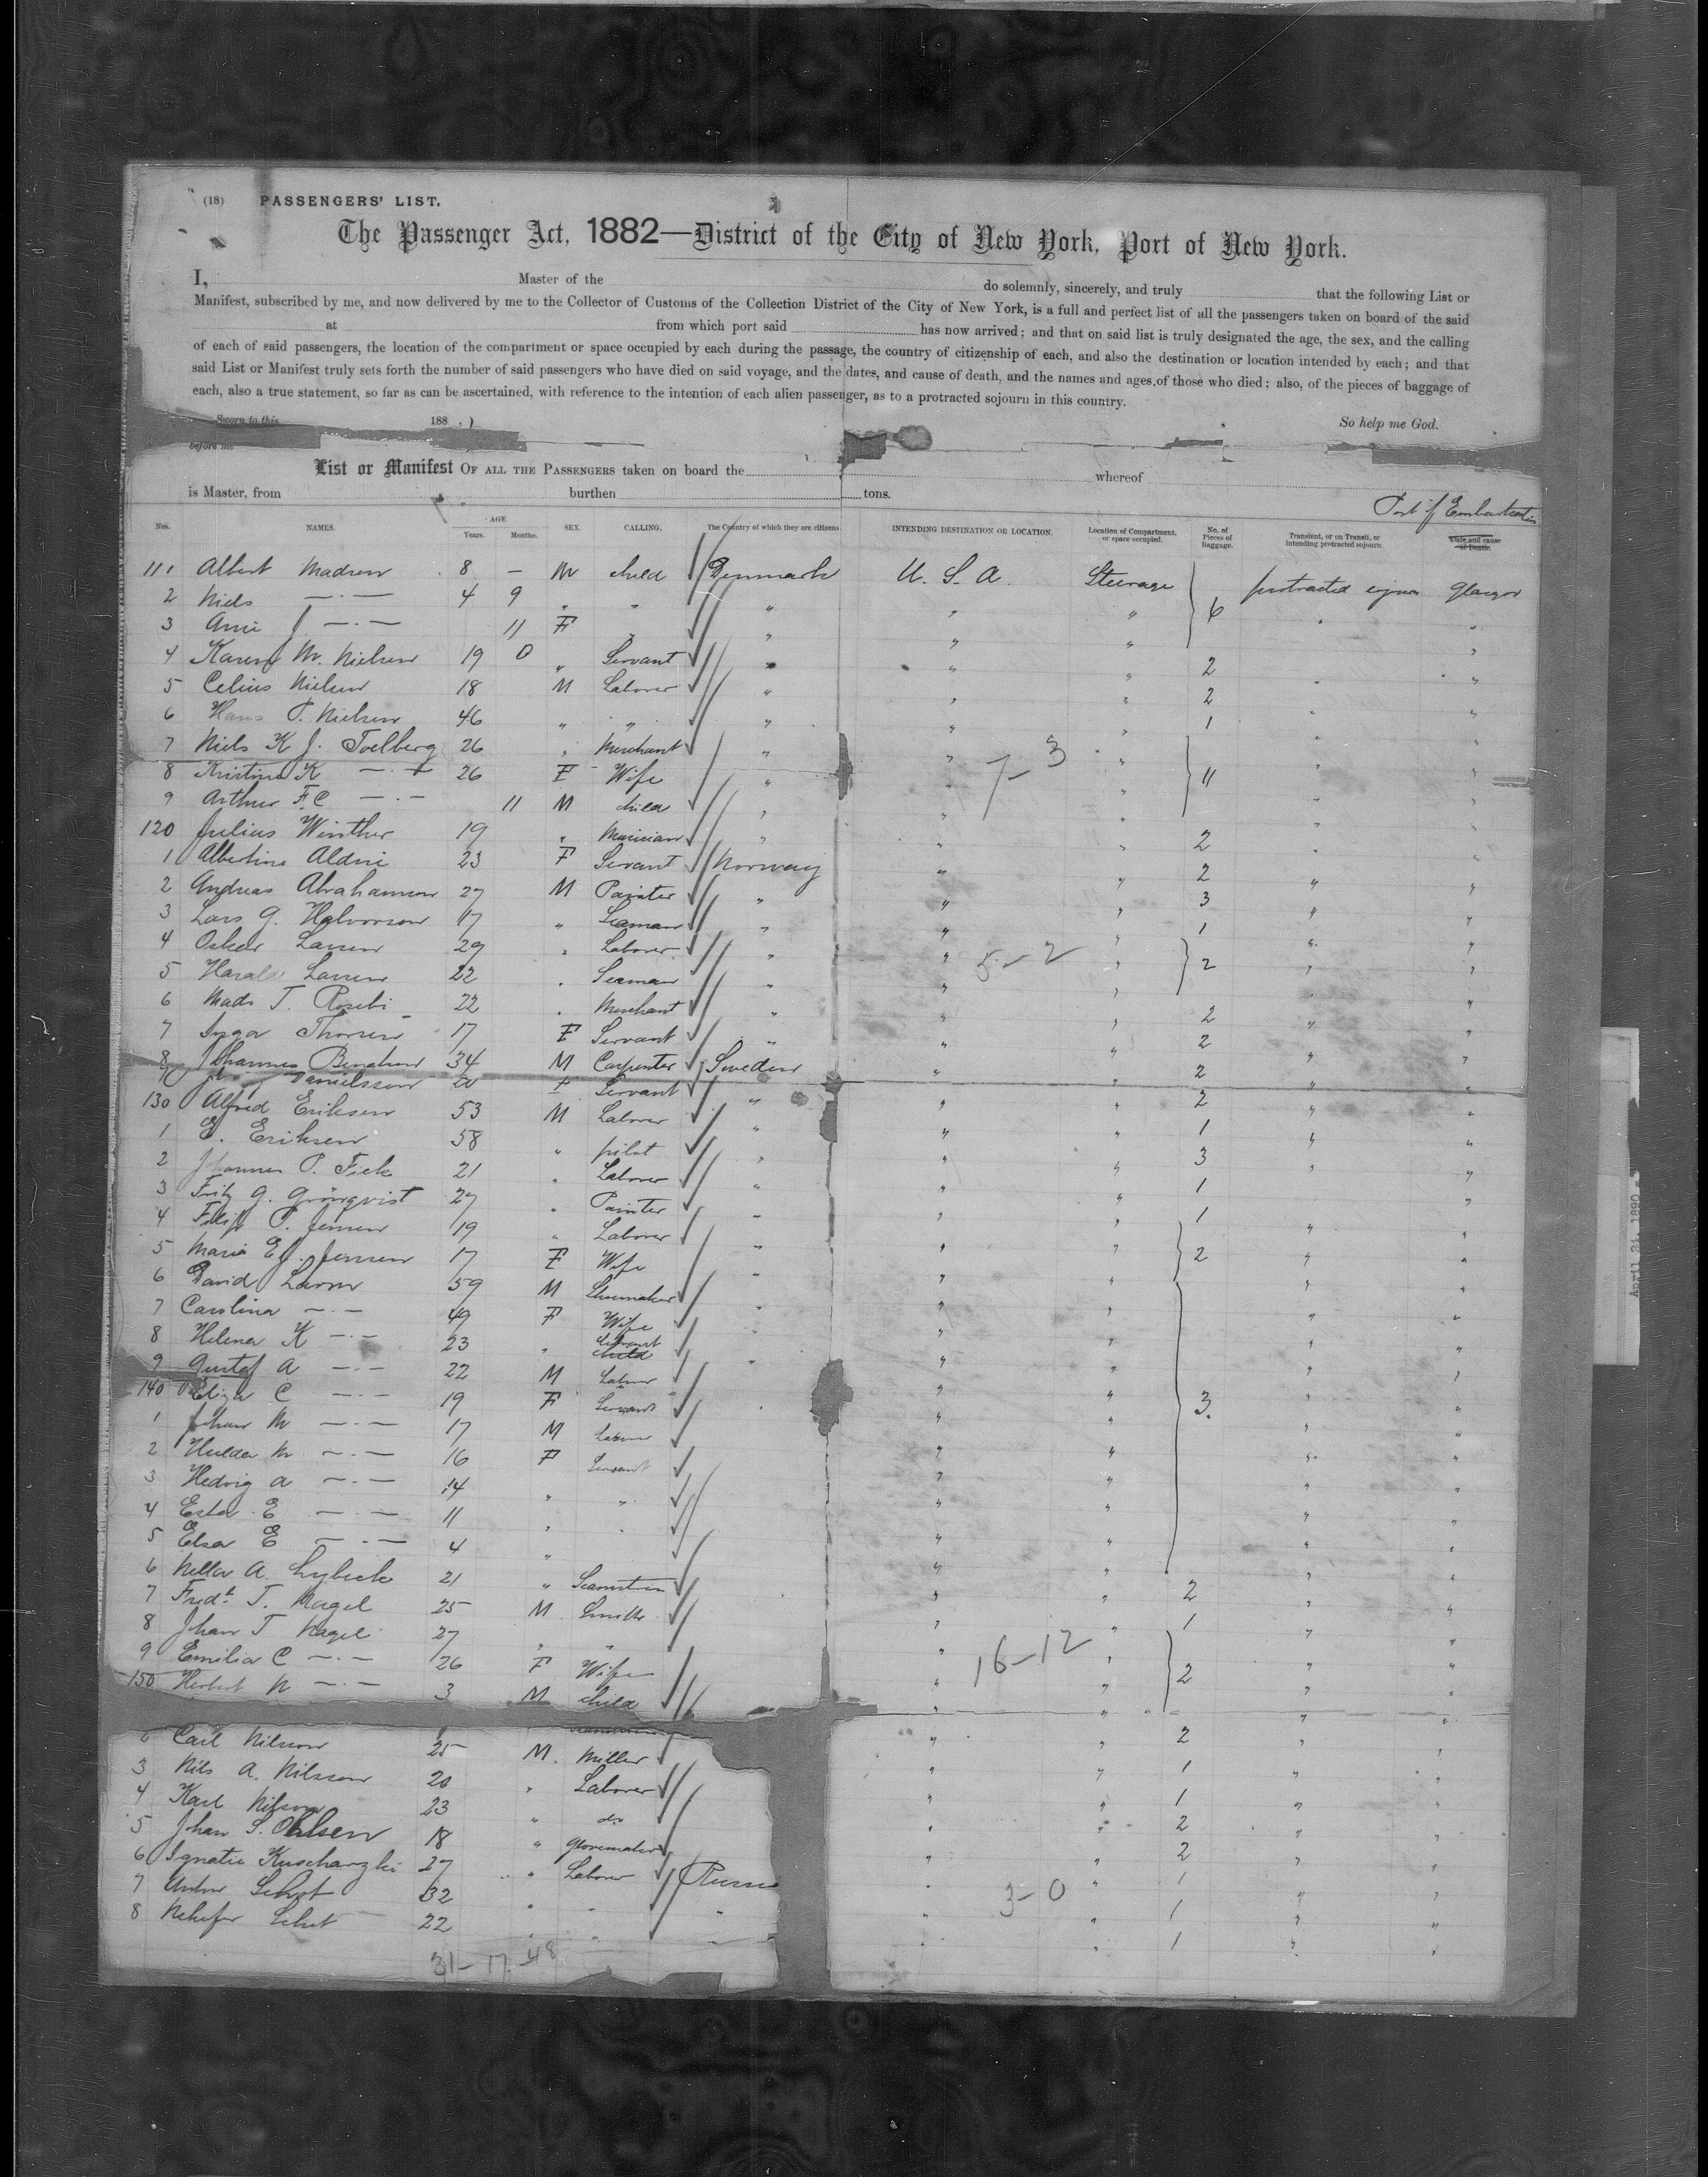 (18) PASSENGERS' LIST.
The Passenger Act, 1882—District of the City of New York, Port of New York.
I, Master of the do solemnly, sincerely, and truly that the following List or
Manifest, subscribed by me, and now delivered by me to the Collector of Customs of the Collection District of the City of New York, is a full and perfect list of all the passengers taken on board of the said
at from which port said has now arrived; and that on said list is truly designated the age, the sex, and the calling
of each of said passengers, the location of the compartment or space occupied by each during the passage, the country of citizenship of each, and also the destination or location intended by each; and that
said List or Manifest truly sets forth the number of said passengers who have died on said voyage, and the dates, and cause of death, and the names and ages of those who died; also, of the pieces of baggage of
each, also a true statement, so far as can be ascertained, with reference to the intention of each alien passenger, as to a protracted sojourn in this country.
Sworn to this 188 . ) So help me God.
before me
List or Manifest OF ALL THE PASSENGERS taken on board the whereof
is Master, from burthen tons.
Port of Embarkation
Nos. NAMES. AGE Years. Months. SEX. CALLING. The Country of which they are citizens. INTENDING DESTINATION OR LOCATION. Location of Compartment, or space occupied. No. of Pieces of Baggage. Transient, or on Transit, or intending protracted sojourn. Date and cause of Death.
111 Albert Madsen 8 — M child Denmark U. S. A. Steerage protracted Glasgow
2 Niels — . — 4 9 " " " " " 6 " "
3 J — . — 11 F " " " " "
4 Karen M. Nielsen 19 0 " Servant " " " 2 " "
5 Celius Nielsen 18 M Laborer " " " 2 " "
6 Hans P. Nielsen 46 " " " " " 1 " "
7 Niels K. J. Toelberg 26 " Merchant " " " " "
8 Kristina K — . — 26 F Wife " " " 11 " "
9 Arthur F. C — . — 11 M child " " " " "
7–3
120 Julius Winther 19 " Musician " " " 2 " "
1 Albertine Aldric 23 F Servant Norway " " 2 " "
2 Andreas Abrahamson 27 M Painter " " " 3 " "
3 Lars G. Halvorson 17 " Seaman " " " 1 " "
4 Oskar Larsen 29 " Laborer " " " 2 " "
5 Harald Larsen 22 " Seaman " " " " "
5–2
6 Mads T. Rosebi 22 " Merchant " " " 2 " "
7 Inga Thorsen 17 F Servant " " " 2 " "
8 Johannes 34 M Carpenter Sweden " " 2 " "
Danielsson F Servant " " " 2 " "
130 Alfred Eriksen 53 M Laborer " " " 1 " "
1 E. Eriksen 58 " pilot " " " 3 " "
2 Johannes P. Fick 21 " Laborer " " " 1 " "
3 Fritz G. Grönqvist 27 " Painter " " " 1 " "
4 Filip P. Jensen 19 " Laborer " " " 2 " "
5 Maria E. J. Jensen 17 F Wife " " " " "
6 David Larson 59 M Shoemaker " " " " "
7 Carolina — . — 49 F Wife " " " " "
8 Helena K — . — 23 " Servant " " " " "
9 Gustaf A — . — 22 M Laborer " " " "
140 Eliza C — . — 19 F Servant " " 3. " "
1 Johan M — . — 17 M Laborer " " " "
2 Hulda M — . — 16 F Servant " " " "
3 Hedvig A — . — 14 " " " " " "
4 Ester E — . — 11 " " " " " "
5 Elsa E — . — 4 " " " " "
6 Nella A. Lybeck 21 " Seamstress " " 2 " "
7 Fredk. T. Nagel 25 M Smith " " 1 " "
8 Johan T Nagel 27 " " " " " "
9 Emilia C — . — 26 F Wife " " 2 " "
16–12
150 Herbert N — . — 3 M child " " " "
2 Carl Nilsson 25 M. Miller " " 2 " "
3 Nils A. Nilsson 20 " Laborer " " 1 " "
4 Karl Nilsson 23 " do " " 1 " "
5 Johan S. Ohlsen 18 " Glovemaker " " 2 " "
6 Ignatie Kuscharzki 27 " Laborer Russia " " 2 " "
7 Schut 32 " " " " " 1 " "
8 Schut 22 " " " " " 1 " "
3–0
31–17–48
April 24, 1890